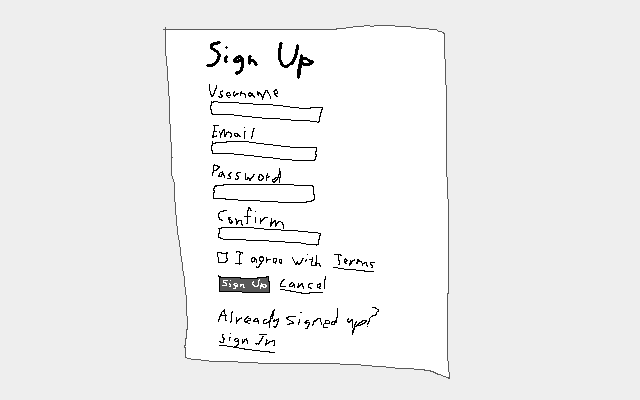 Sign Up
Username
Email
Password
Confirm
I agree with Terms
Sign Up Cancel
Already signed up?
Sign In